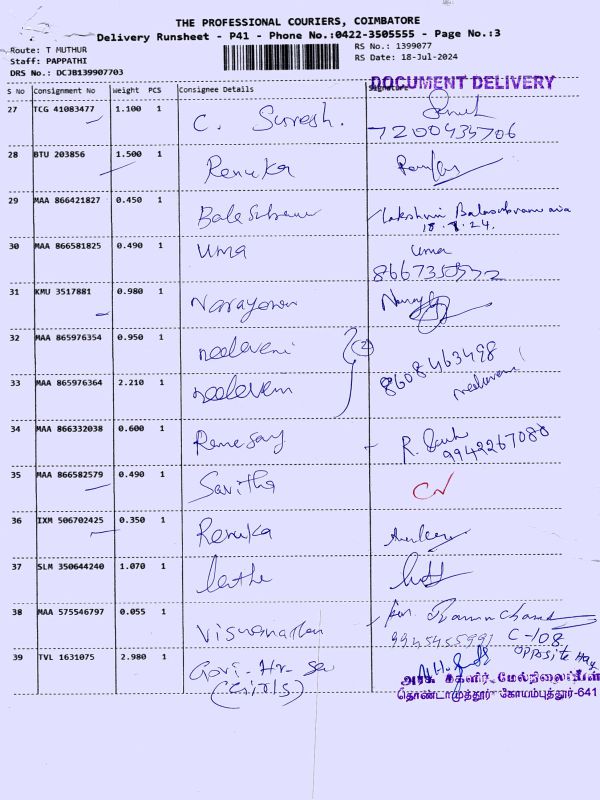 THE PROFESSIONAL COURIERS, COIMBATORE
Delivery Runsheet - P41 - Phone No.:0422-3505555 - Page No.:3
Route: T MUTHUR
Staff: PAPPATHI
DRS No.: DCJB139907703
RS No.: 1399077
RS Date: 18-Jul-2024
DOCUMENT DELIVERY
S No Consignment No Weight PCS Consignee Details Signature
27 TCG 41083477 1.100 1 C. Suresh. 
7200434706
28 BTU 203856 1.500 1 Renuka
29 MAA 866421827 0.450 1 Lakshmi
18.7.24.
30 MAA 866581825 0.490 1 Uma Uma
31 KMU 3517881 0.980 1 Narayanan
32 MAA 865976354 0.950 1 neelaveni
33 MAA 865976364 2.210 1 neelaveni 8608463498
34 MAA 866332038 0.600 1 R.
9942267080
35 MAA 866582579 0.490 1 Savitha
36 IXM 506702425 0.350 1 Renuka
37 SLM 350644240 1.070 1 Latha
38 MAA 575546797 0.055 1 Viswanathan
C-108
opposite
39 TVL 1631075 2.980 1 Govi-Hr-se
(Girls)
அரசு மகளிர் மேல்நிலைப்பள்
தொண்டாமுத்தூர் கோயம்புத்தூர்-641